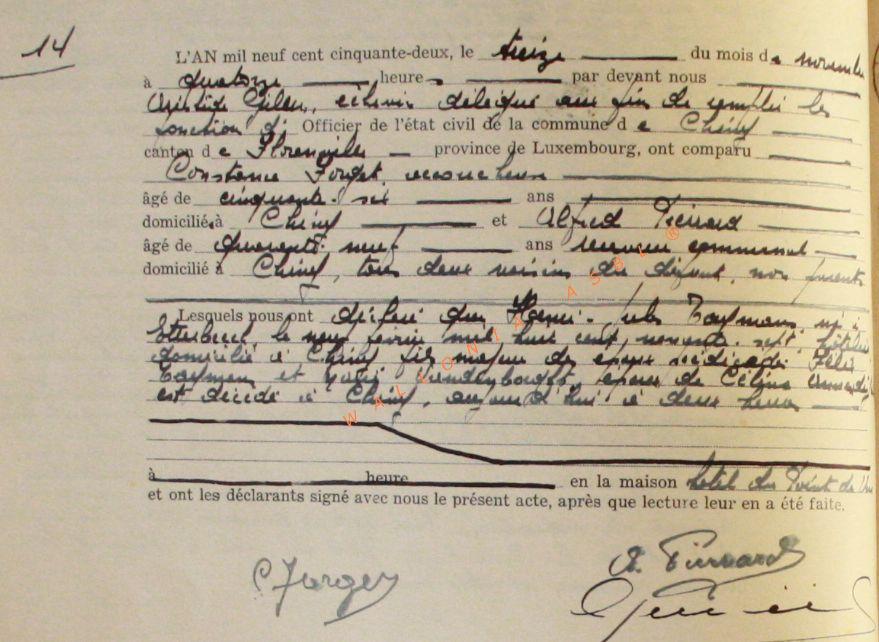 14
L'AN mil neuf cent cinquante-deux, le treize du mois de novembre
à quatorze heures par devant nous
Gilen, échevin délégué aux fin de remplir les
fonction d' Officier de l'état civil de la commune de Chiny
canton de Florenville province de Luxembourg, ont comparu
Constance Forget, accoucheuse
âgé de cinquante-six ans
domicilié à Chiny et Alfred Piérard
âgé de quarante-neuf ans receveur communal
domicilié à Chiny, tous deux voisins du défunt, non parents
Lesquels nous ont déclaré que Henri-Jules Taymans, né à
Etterbeek, le neuf février mil huit cent nonante-sept, hôtelier
domicilié à Chiny fils majeur de époux décédés Félix
Taymans et Vandenbought, époux de Céline
est décédé à Chiny, aujourd'hui à deux heures
à heure en la maison hôtel du Point de Vue
et ont les déclarants signé avec nous le présent acte, après que lecture leur en a été faite.
C Forget A. Piérard
WALLONIA ASBL ®